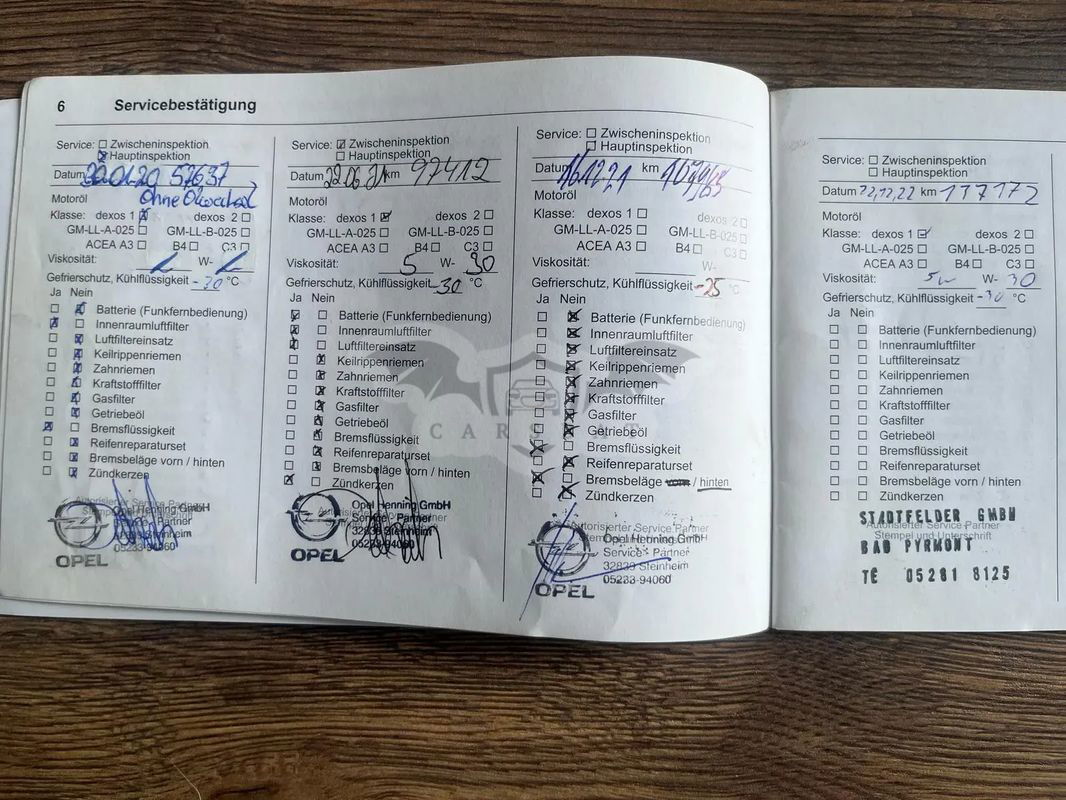 6 Servicebestätigung
Service: ☐ Zwischeninspektion
☒ Hauptinspektion
Datum 30.01.20 57637
Ohne Ölwechsel
Motoröl
Klasse: dexos 1 ☒ dexos 2 ☐
GM-LL-A-025 ☐ GM-LL-B-025 ☐
ACEA A3 ☐ B4 ☐ C3 ☐
Viskosität: W-
Gefrierschutz, Kühlflüssigkeit -30 °C
Ja Nein
☐ ☒ Batterie (Funkfernbedienung)
☒ ☐ Innenraumluftfilter
☐ ☒ Luftfiltereinsatz
☐ ☒ Keilrippenriemen
☐ ☒ Zahnriemen
☐ ☒ Kraftstofffilter
☐ ☒ Gasfilter
☐ ☒ Getriebeöl
☒ ☐ Bremsflüssigkeit
☐ ☒ Reifenreparaturset
☐ ☒ Bremsbeläge vorn / hinten
☐ ☒ Zündkerzen
Autorisierter Service Partner
Opel Henning GmbH
Service - Partner
32839 Steinheim
05233-94060
OPEL
Service: ☒ Zwischeninspektion
☐ Hauptinspektion
Datum 29.06.21 km 97412
Motoröl
Klasse: dexos 1 ☒ dexos 2 ☐
GM-LL-A-025 ☐ GM-LL-B-025 ☐
ACEA A3 ☐ B4 ☐ C3 ☐
Viskosität: 5 W- 30
Gefrierschutz, Kühlflüssigkeit -30 °C
Ja Nein
☒ ☐ Batterie (Funkfernbedienung)
☒ ☐ Innenraumluftfilter
☒ ☐ Luftfiltereinsatz
☐ ☒ Keilrippenriemen
☐ ☒ Zahnriemen
☐ ☒ Kraftstofffilter
☐ ☒ Gasfilter
☐ ☒ Getriebeöl
☐ ☒ Bremsflüssigkeit
☐ ☒ Reifenreparaturset
☐ ☒ Bremsbeläge vorn / hinten
☒ ☐ Zündkerzen
Opel Henning GmbH
Service - Partner
32839 Steinheim
05233-94060
OPEL
Service: ☐ Zwischeninspektion
☐ Hauptinspektion
Datum 16.12.21 km
Motoröl
Klasse: dexos 1 ☐ dexos 2 ☐
GM-LL-A-025 ☐ GM-LL-B-025 ☐
ACEA A3 ☐ B4 ☐ C3 ☐
Viskosität: W-
Gefrierschutz, Kühlflüssigkeit -25 °C
Ja Nein
☐ ☒ Batterie (Funkfernbedienung)
☐ ☒ Innenraumluftfilter
☐ ☒ Luftfiltereinsatz
☐ ☒ Keilrippenriemen
☐ ☒ Zahnriemen
☐ ☒ Kraftstofffilter
☐ ☒ Gasfilter
☐ ☒ Getriebeöl
☒ ☐ Bremsflüssigkeit
☐ ☒ Reifenreparaturset
☒ ☐ Bremsbeläge vorn / hinten
☐ ☒ Zündkerzen
Autorisierter Service Partner
Opel Henning GmbH
Service - Partner
32839 Steinheim
05233-94060
OPEL
Service: ☐ Zwischeninspektion
☐ Hauptinspektion
Datum 22.12.22 km 117172
Motoröl
Klasse: dexos 1 ☑ dexos 2 ☐
GM-LL-A-025 ☐ GM-LL-B-025 ☐
ACEA A3 ☐ B4 ☐ C3 ☐
Viskosität: 5w W- 30
Gefrierschutz, Kühlflüssigkeit -30 °C
Ja Nein
☐ ☐ Batterie (Funkfernbedienung)
☐ ☐ Innenraumluftfilter
☐ ☐ Luftfiltereinsatz
☐ ☐ Keilrippenriemen
☐ ☐ Zahnriemen
☐ ☐ Kraftstofffilter
☐ ☐ Gasfilter
☐ ☐ Getriebeöl
☐ ☐ Bremsflüssigkeit
☐ ☐ Reifenreparaturset
☐ ☐ Bremsbeläge vorn / hinten
☐ ☐ Zündkerzen
STADTFELDER GMBH
Autorisierter Service Partner
Stempel und Unterschrift
BAD PYRMONT
TE 05281 8125